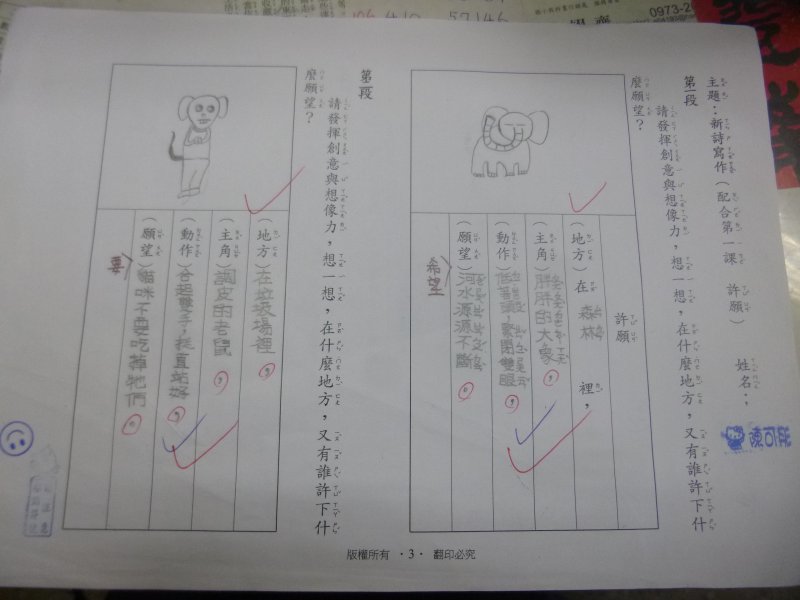 主題：新詩寫作（配合第一課 許願） 姓名：
陳可
第一段
請發揮創意與想像力，想一想，在什麼地方，又有誰許下什
麼願望？
許願
（地方）在 森林 裡，
（主角）胖胖的大象，
（動作）低著頭，緊閉雙眼，
（願望）河水源源不斷。
希望
第二段
請發揮創意與想像力，想一想，在什麼地方，又有誰許下什
麼願望？
（地方）在垃圾場裡，
（主角）調皮的老鼠，
（動作）合起雙手，挺直站好，
（願望）貓咪不要吃掉牠們。
要
版權所有 ‧3‧ 翻印必究
0973-20